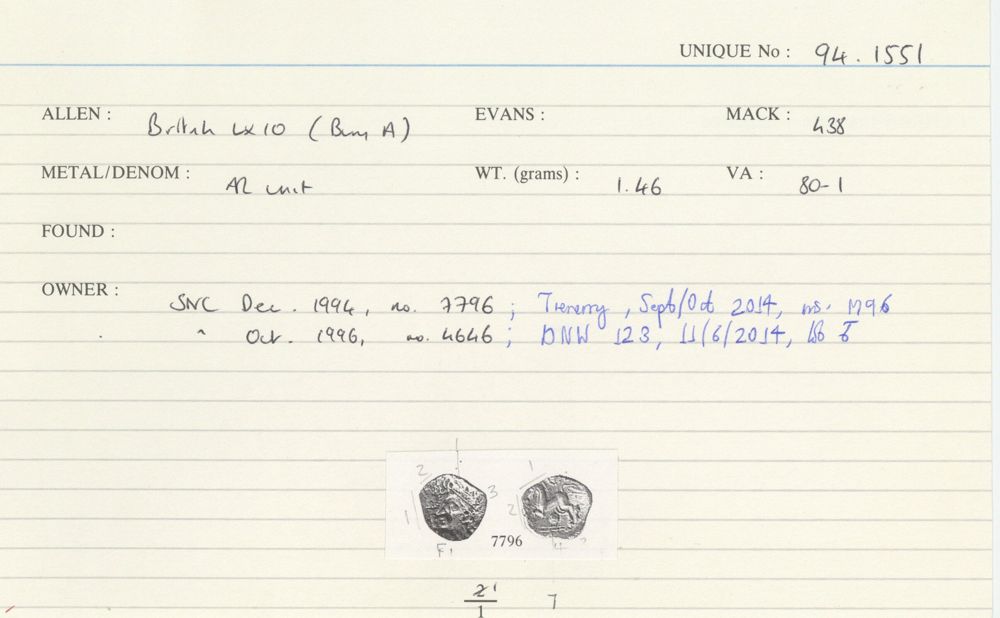 UNIQUE No : 94.1551
ALLEN : British LX10 (Bury A) EVANS : MACK : 438
METAL/DENOM : AR unit WT. (grams) : 1.46 VA : 80-1
FOUND :
OWNER : SNC Dec. 1994, no. 7796 ; Treverry, Sept/Oct 2014, no. M96
" Oct. 1996, no. 4646 ; DNW 123, 11/6/2014,
1
2 1
3
1 2
F1 7796 4 ?
2 1
1 7